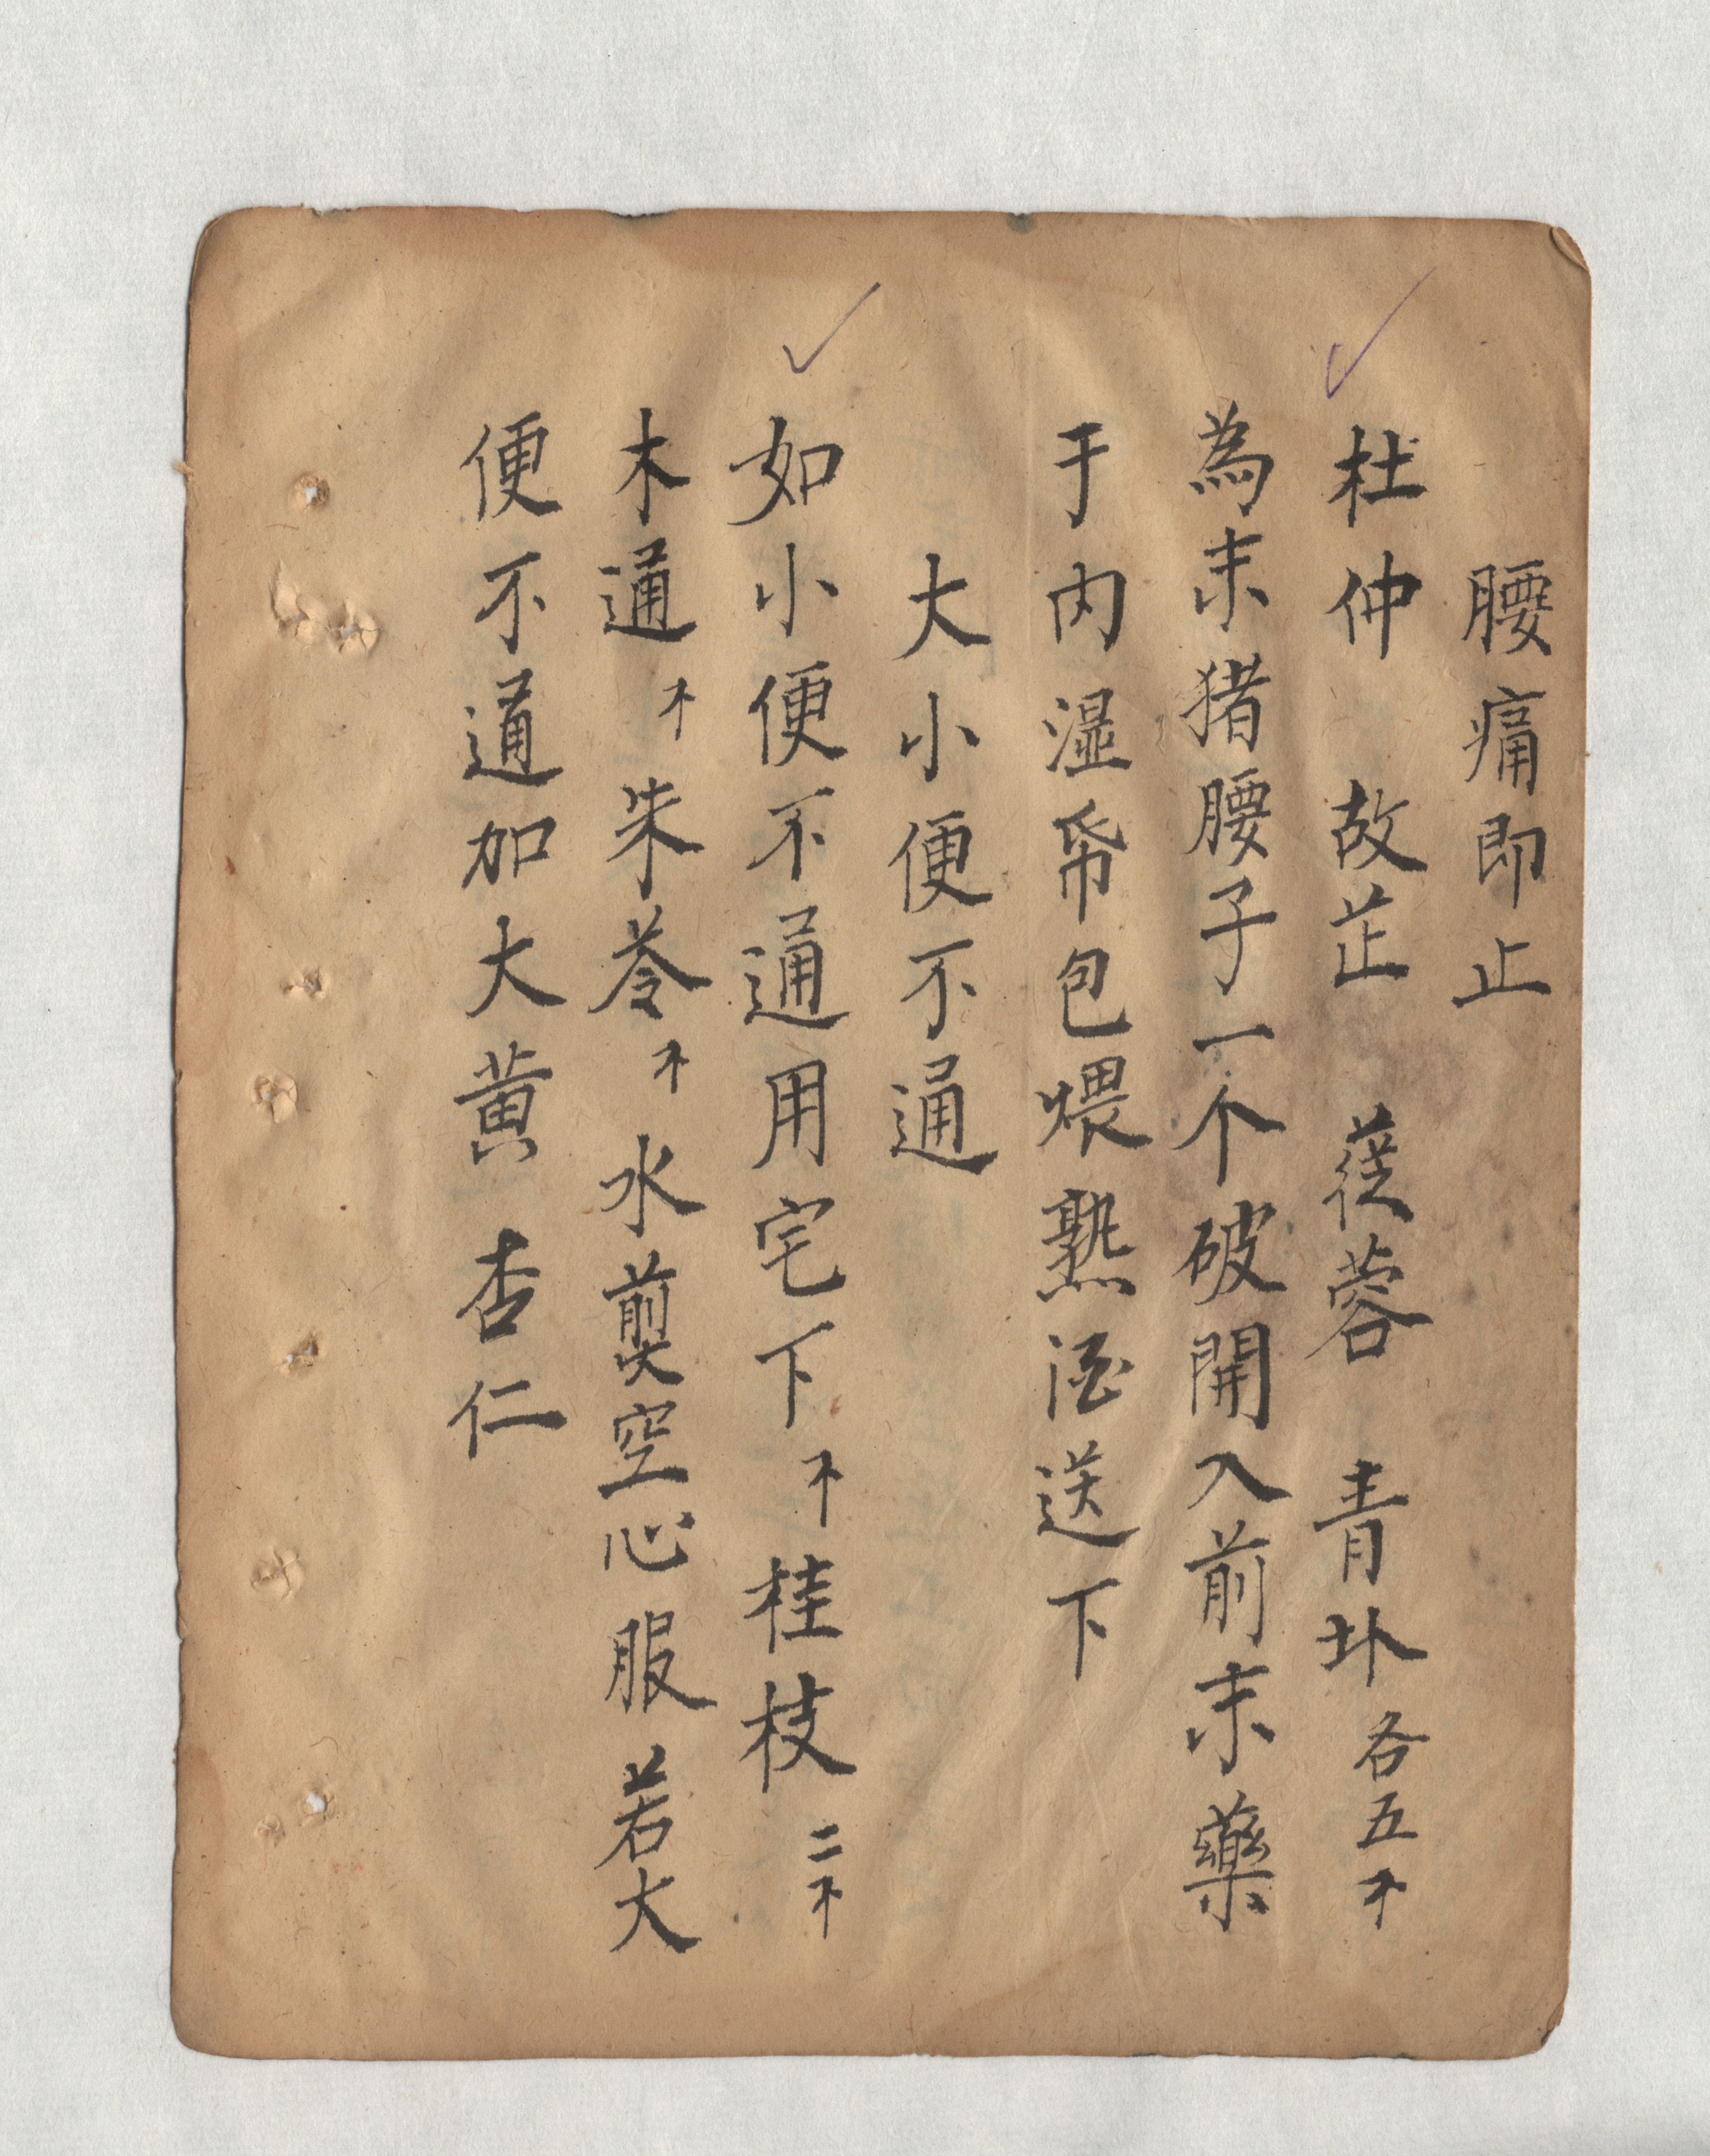 腰痛即止
杜仲 故芷 苁蓉 青圤 各五不
為末猪腰子一个破開入前末藥
于内濕帋包煨熟酒送下
大小便不通
如小便不通用宅下不桂枝二不
木通不朱苓不水煎空心服若大
便不通加大黄杏仁